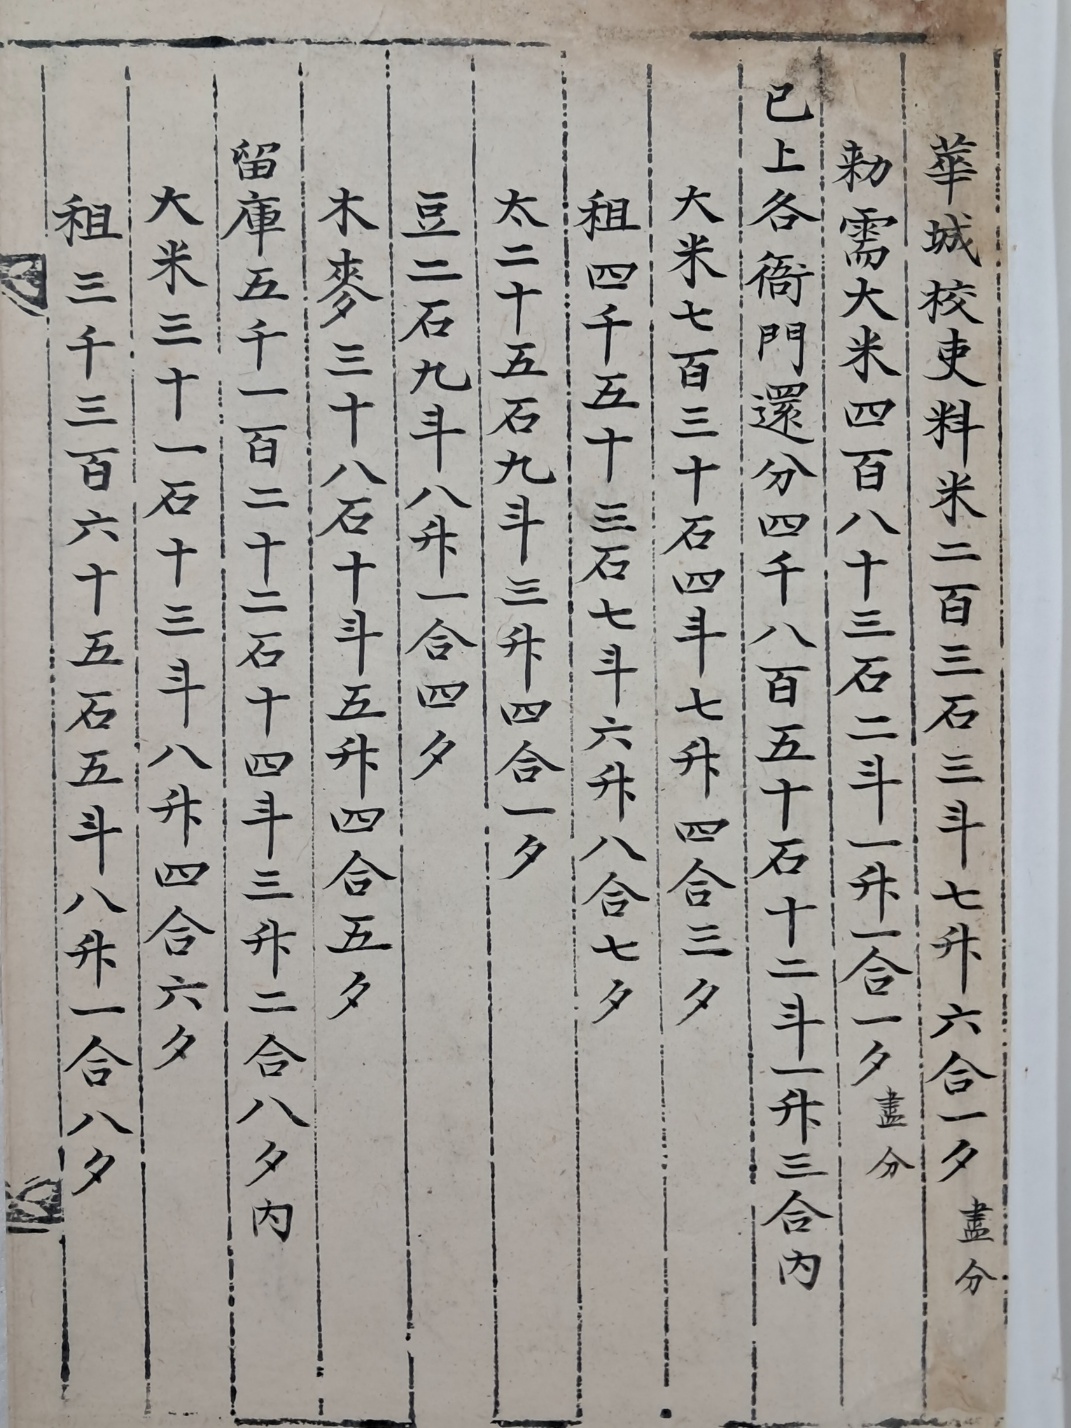 華城校吏料米二百三石三斗七升六合一夕 盡分
勑需大米四百八十三石二斗一升一合一夕 盡分
已上各衙門還分四千八百五十石十二斗一升三合內
大米七百三十石四斗七升四合三夕
租四千五十三石七斗六升八合七夕
太二十五石九斗三升四合一夕
豆二石九斗八升一合四夕
木麥三十八石十斗五升四合五夕
留庫五千一百二十二石十四斗三升二合八夕內
大米三十一石十三斗八升四合六夕
租三千三百六十五石五斗八升一合八夕